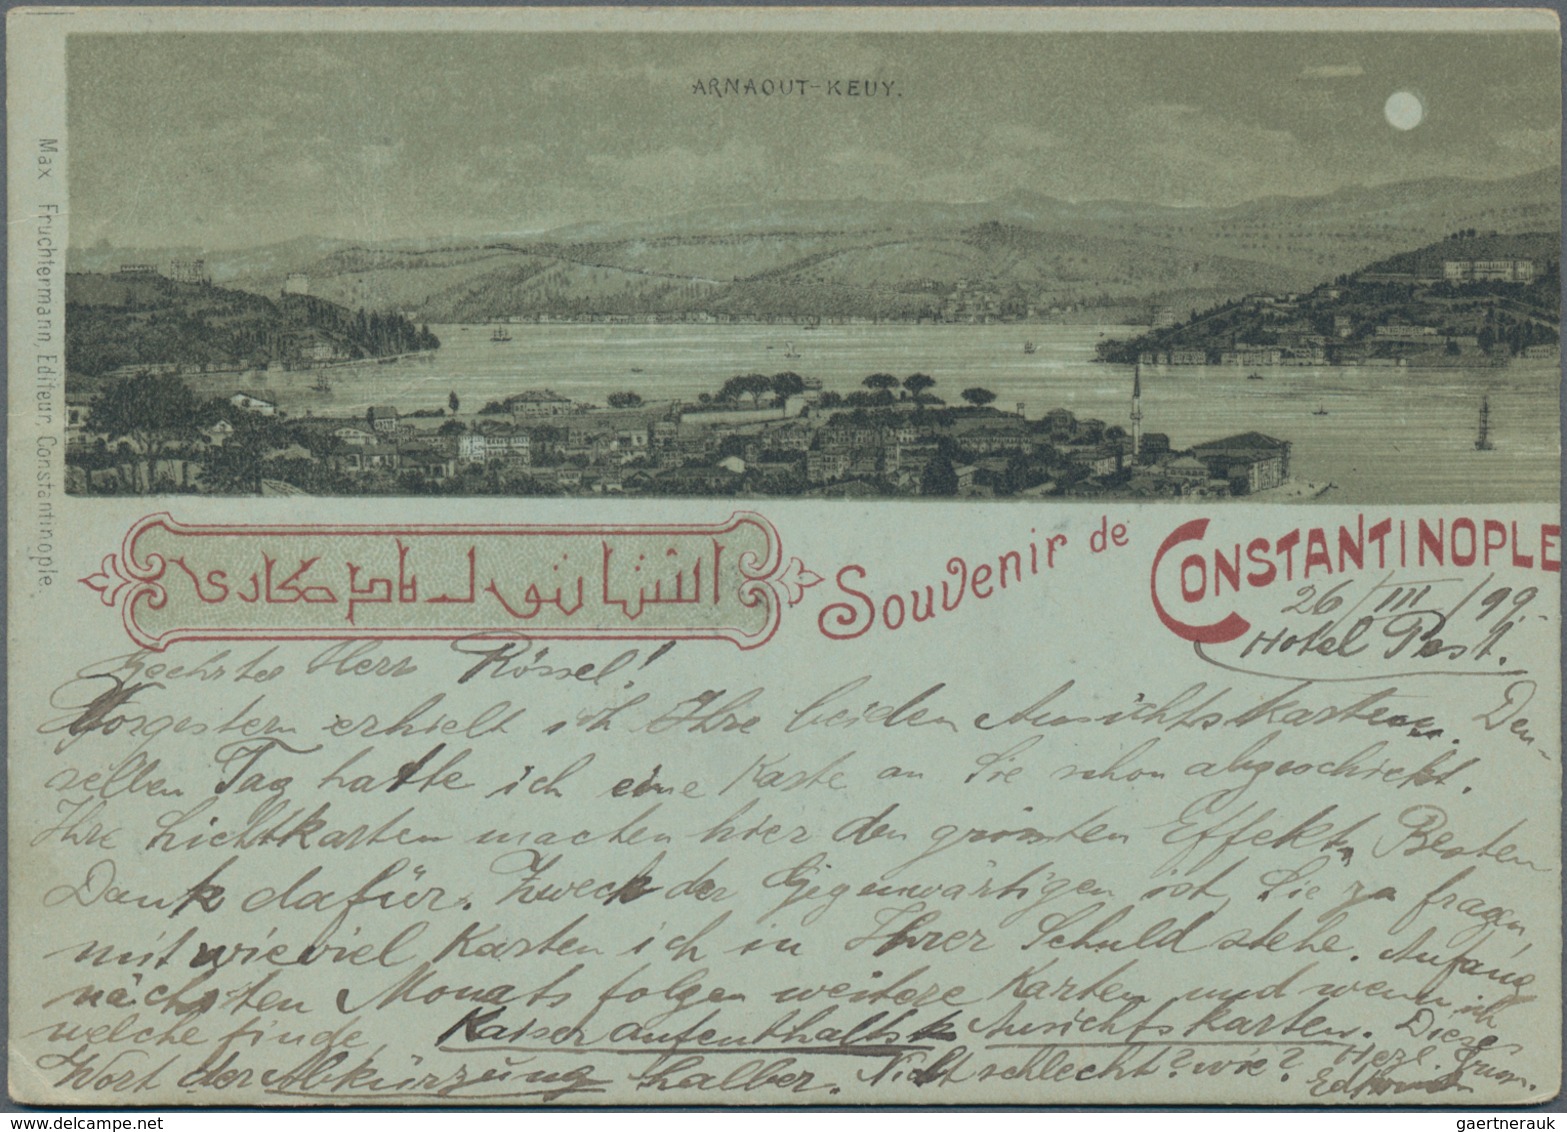 ARNAOUT-KEUY.
Max Fruchtermann, Editeur, Constantinople.
Souvenir de CONSTANTINOPLE
26/III/99.
Hotel Pest.
Geehrter Herr Rössel!
Vorgestern erhielt ich Ihre beiden Ansichtskarten. Den-
selben Tag hatte ich eine Karte an Sie schon abgeschickt.
Ihre Lichtkarten machen hier den grössten Effekt. Besten
Dank dafür. Zweck der Gegenwärtigen ist, Sie zu fragen,
mit wieviel Karten ich in Ihrer Schuld stehe. Anfang
nächsten Monats folgen weitere Karten und wenn ich
welche finde, Kaiseraufenthalts Ansichtskarten. Dieses
Wort der Abkürzung halber. Nicht schlecht? wie? Herzl.
gaertnerauk